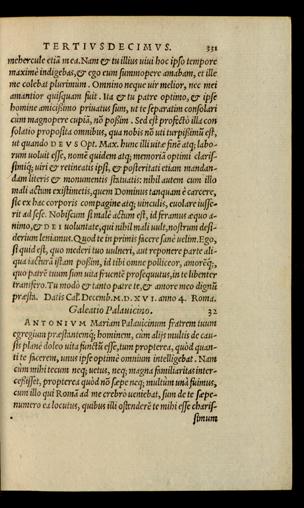 TERTIVSDECIMVS. 331
mehercule etiã mea. Nam & tu illius uiui hoc ipso tempore
maximè indigebas, & ego eum summopere amabam, et ille
me colebat plurimum. Omnino neque uir melior, nec mei
amantior quisquam fuit. Ita & tu patre optimo, & ipse
homine amicissimo priuatus sum, ut te separatim consolari
cùm magnopere cupiã, nõ poßim. Sed est profectò illa con
solatio proposita omnibus, qua nobis nõ uti turpißimũ est,
ut quando DEVS Opt. Max. hunc illi uitæ finẽ atq; labo-
rum uoluit esse, nomẽ quidem atq; memoriã optimi claris-
simiq́; uiri & retineatis ipsi, & posteritati etiam mandan-
dam literis & monumentis statuatis: nihil autem cum illo
mali actum existimetis, quem Dominus tanquam è carcere,
sic ex hac corporis compagine atq; uinculis, euolare iusse-
rit ad sese. Nobiscum si malè actum est, id feramus æquo a-
nimo, & DEI uoluntate, qui nihil mali uult, nostrum desi-
derium leniamus. Quod te in primis facere sanè uelim. Ego,
si quid est, quo mederi tuo vulneri, aut reponere parte ali-
qua iacturã istam poßim, id tibi omne polliceor, amorẽq́;,
quo patrẽ tuum sum uita fruentẽ prosequutus, in te libenter
transfero. Tu modò & tanto patre te, & amore meo dignũ
præsta. Datis Cal. Decemb. M. D. XVI. anno 4. Roma.
Galeatio Palauicino. 32
ANTONIVM Mariam Palauicinum fratrem tuum
egregium præstantemq́; hominem, cùm alijs multis de cau-
sis planè doleo uita functũ esse, tum propterea, quòd quan-
ti te facerem, unus ipse optimè omnium intelligebat. Nam
cùm mihi tecum neq; uetus, neq; magna familiaritas inter-
ceßisset, propterea quòd nõ sæpe neq; multùm unà fuimus,
cum illo qui Romã ad me crebrò ueniebat, sum de te sæpe-
numero ea locutus, quibus illi ostenderẽ te mihi esse charis-
simum